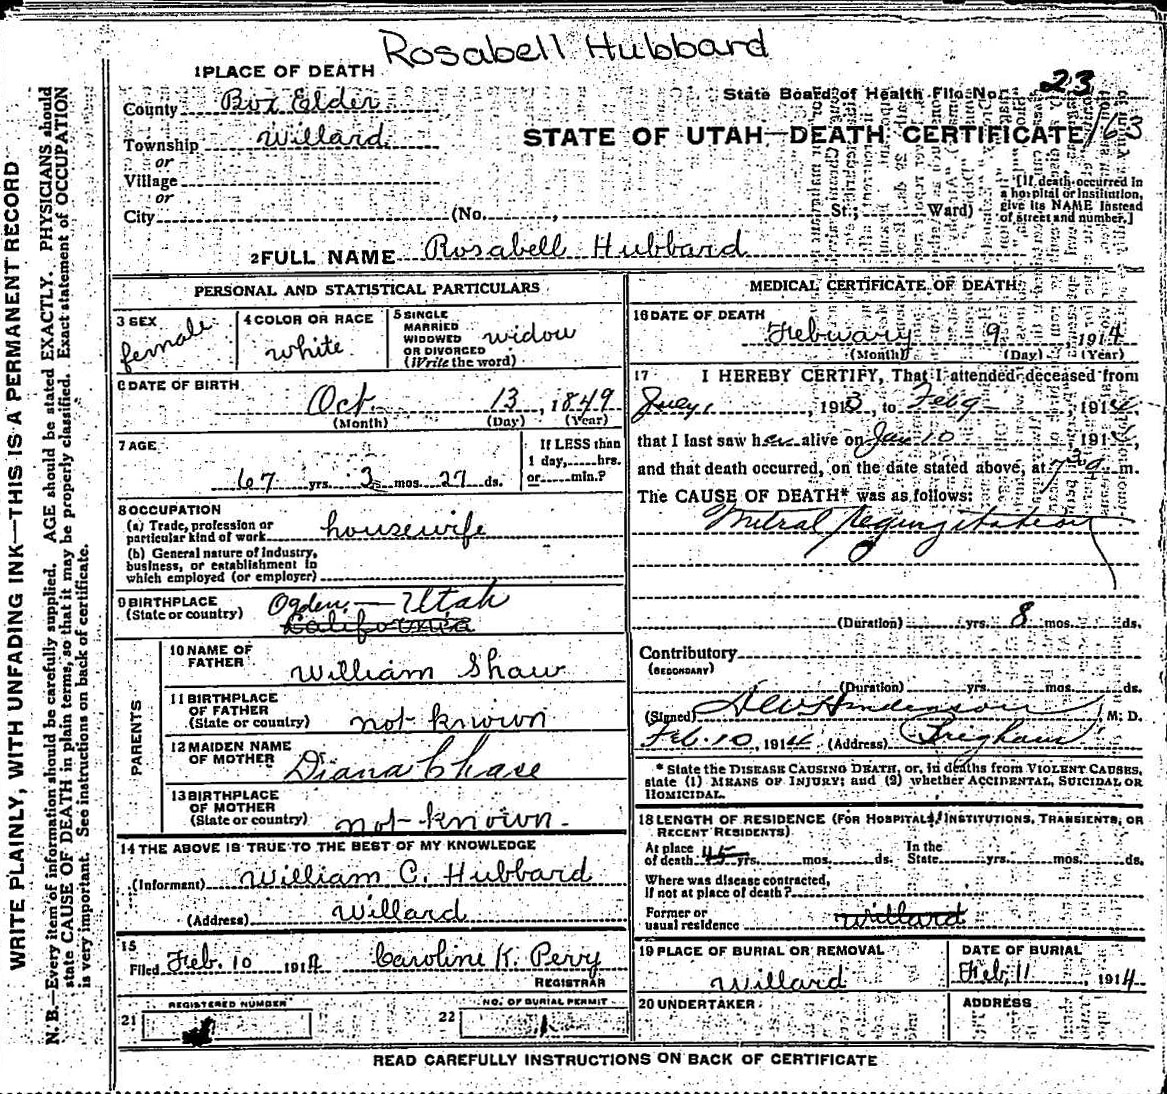 Rosabell Hubbard
1 PLACE OF DEATH
County Box Elder
State Board of Health File No. 23
Township Willard
STATE OF UTAH—DEATH CERTIFICATE 163
or
Village
or
City (No. , St.; Ward)
[If death occurred in
a hospital or institution,
give its NAME instead
of street and number.]
2 FULL NAME Rosabell Hubbard
PERSONAL AND STATISTICAL PARTICULARS
3 SEX
female
4 COLOR OR RACE
white
5 SINGLE
MARRIED
WIDOWED
OR DIVORCED
(Write the word)
widow
6 DATE OF BIRTH
Oct. 13, 1849
(Month) (Day) (Year)
7 AGE
67 yrs. 3 mos. 27 ds.
If LESS than
1 day, hrs.
or min.?
8 OCCUPATION
(a) Trade, profession or
particular kind of work housewife
(b) General nature of industry,
business, or establishment in
which employed (or employer)
9 BIRTHPLACE
(State or country)
Ogden, — Utah
California
PARENTS
10 NAME OF
FATHER
William Shaw
11 BIRTHPLACE
OF FATHER
(State or country) not known
12 MAIDEN NAME
OF MOTHER
Diana Chase
13 BIRTHPLACE
OF MOTHER
(State or country) not known.
14 THE ABOVE IS TRUE TO THE BEST OF MY KNOWLEDGE
(Informant) William C. Hubbard
(Address) Willard
15
Filed Feb. 10 1914 Caroline K. Perry
REGISTRAR
REGISTERED NUMBER
21
NO. OF BURIAL PERMIT
22 1
MEDICAL CERTIFICATE OF DEATH
16 DATE OF DEATH
Febuary 9, 1914
(Month) (Day) (Year)
17 I HEREBY CERTIFY, That I attended deceased from
July 1, 1913, to Feb 9, 1914,
that I last saw her alive on Jan 10, 1914,
and that death occurred, on the date stated above, at m.
The CAUSE OF DEATH* was as follows:
Mitral Regurgitation
(Duration) yrs. 8 mos. ds.
Contributory
(SECONDARY)
(Duration) yrs. mos. ds.
(Signed) Henderson, M. D.
Feb. 10, 1914 (Address) Brigham
* State the DISEASE CAUSING DEATH, or, in deaths from VIOLENT CAUSES,
state (1) MEANS OF INJURY; and (2) whether ACCIDENTAL, SUICIDAL OR
HOMICIDAL.
18 LENGTH OF RESIDENCE (FOR HOSPITALS, INSTITUTIONS, TRANSIENTS, OR
RECENT RESIDENTS)
At place
of death 45 yrs. mos. ds.
In the
State yrs. mos. ds.
Where was disease contracted,
If not at place of death?
Former or
usual residence Willard
19 PLACE OF BURIAL OR REMOVAL
Willard
DATE OF BURIAL
Feb. 11, 1914
20 UNDERTAKER
ADDRESS
READ CAREFULLY INSTRUCTIONS ON BACK OF CERTIFICATE
WRITE PLAINLY, WITH UNFADING INK—THIS IS A PERMANENT RECORD
N. B.—Every item of information should be carefully supplied. AGE should be stated EXACTLY. PHYSICIANS should
state CAUSE OF DEATH in plain terms, so that it may be properly classified. Exact statement of OCCUPATION
is very important. See instructions on back of certificate.